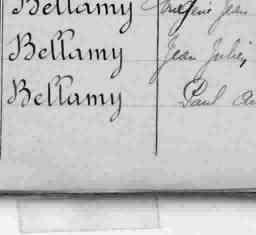 Bellamy Eugène Jean
Bellamy Jean Julien
Bellamy Paul